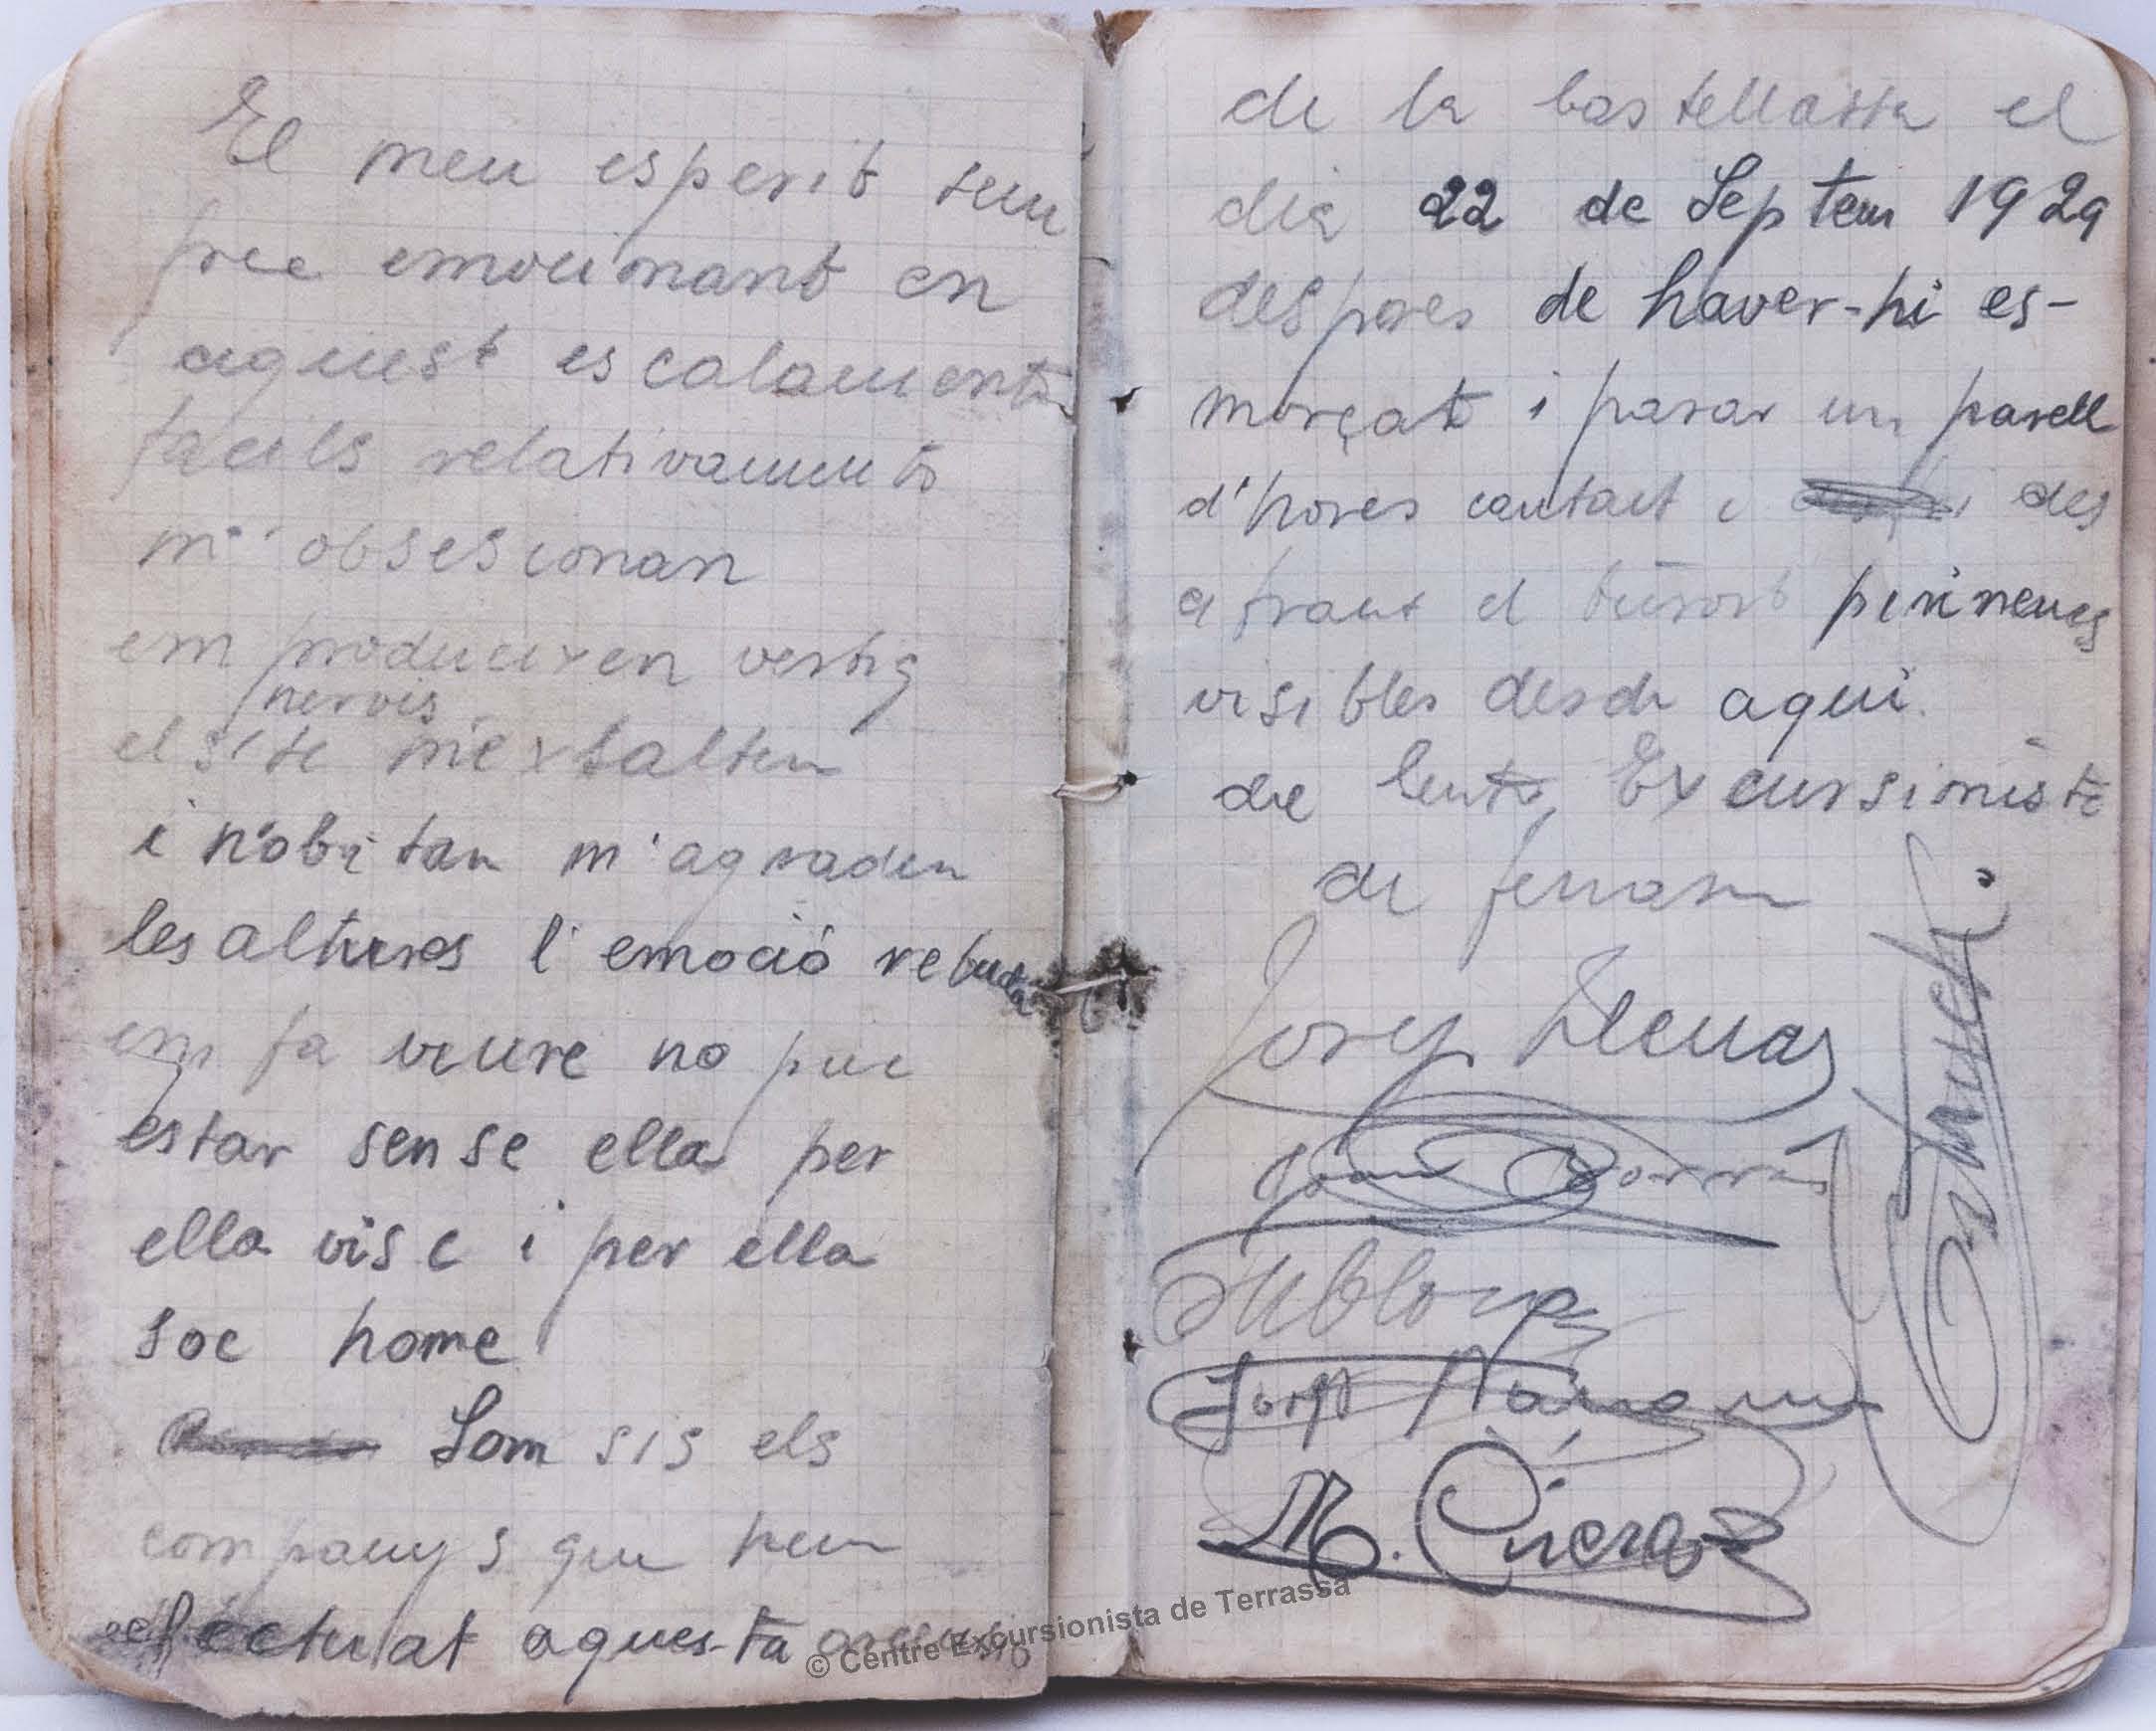 El meu esperit sem
pre emocionant en
aquest escalaments
facils relativaments
m'obsesionan
em produeixen vertig
nervis
els m'exsalten
i n'obstan m'agraden
les altures l'emoció rebuda
em fa viure no puc
estar sense ella per
ella visc i per ella
soc home
Som sis els
companys que hem
efectuat aquesta
de la castellassa el
dia 22 de Septem 1929
despres de haver-hi es-
morçat i pasar un parell
d'hores cantant i des
afiant el pirineucs
visibles desde aqui.
del Centre Excursionista
de Terrassa
Josep
Joan Borràs
Josep
M.
© Centre Excursionista de Terrassa